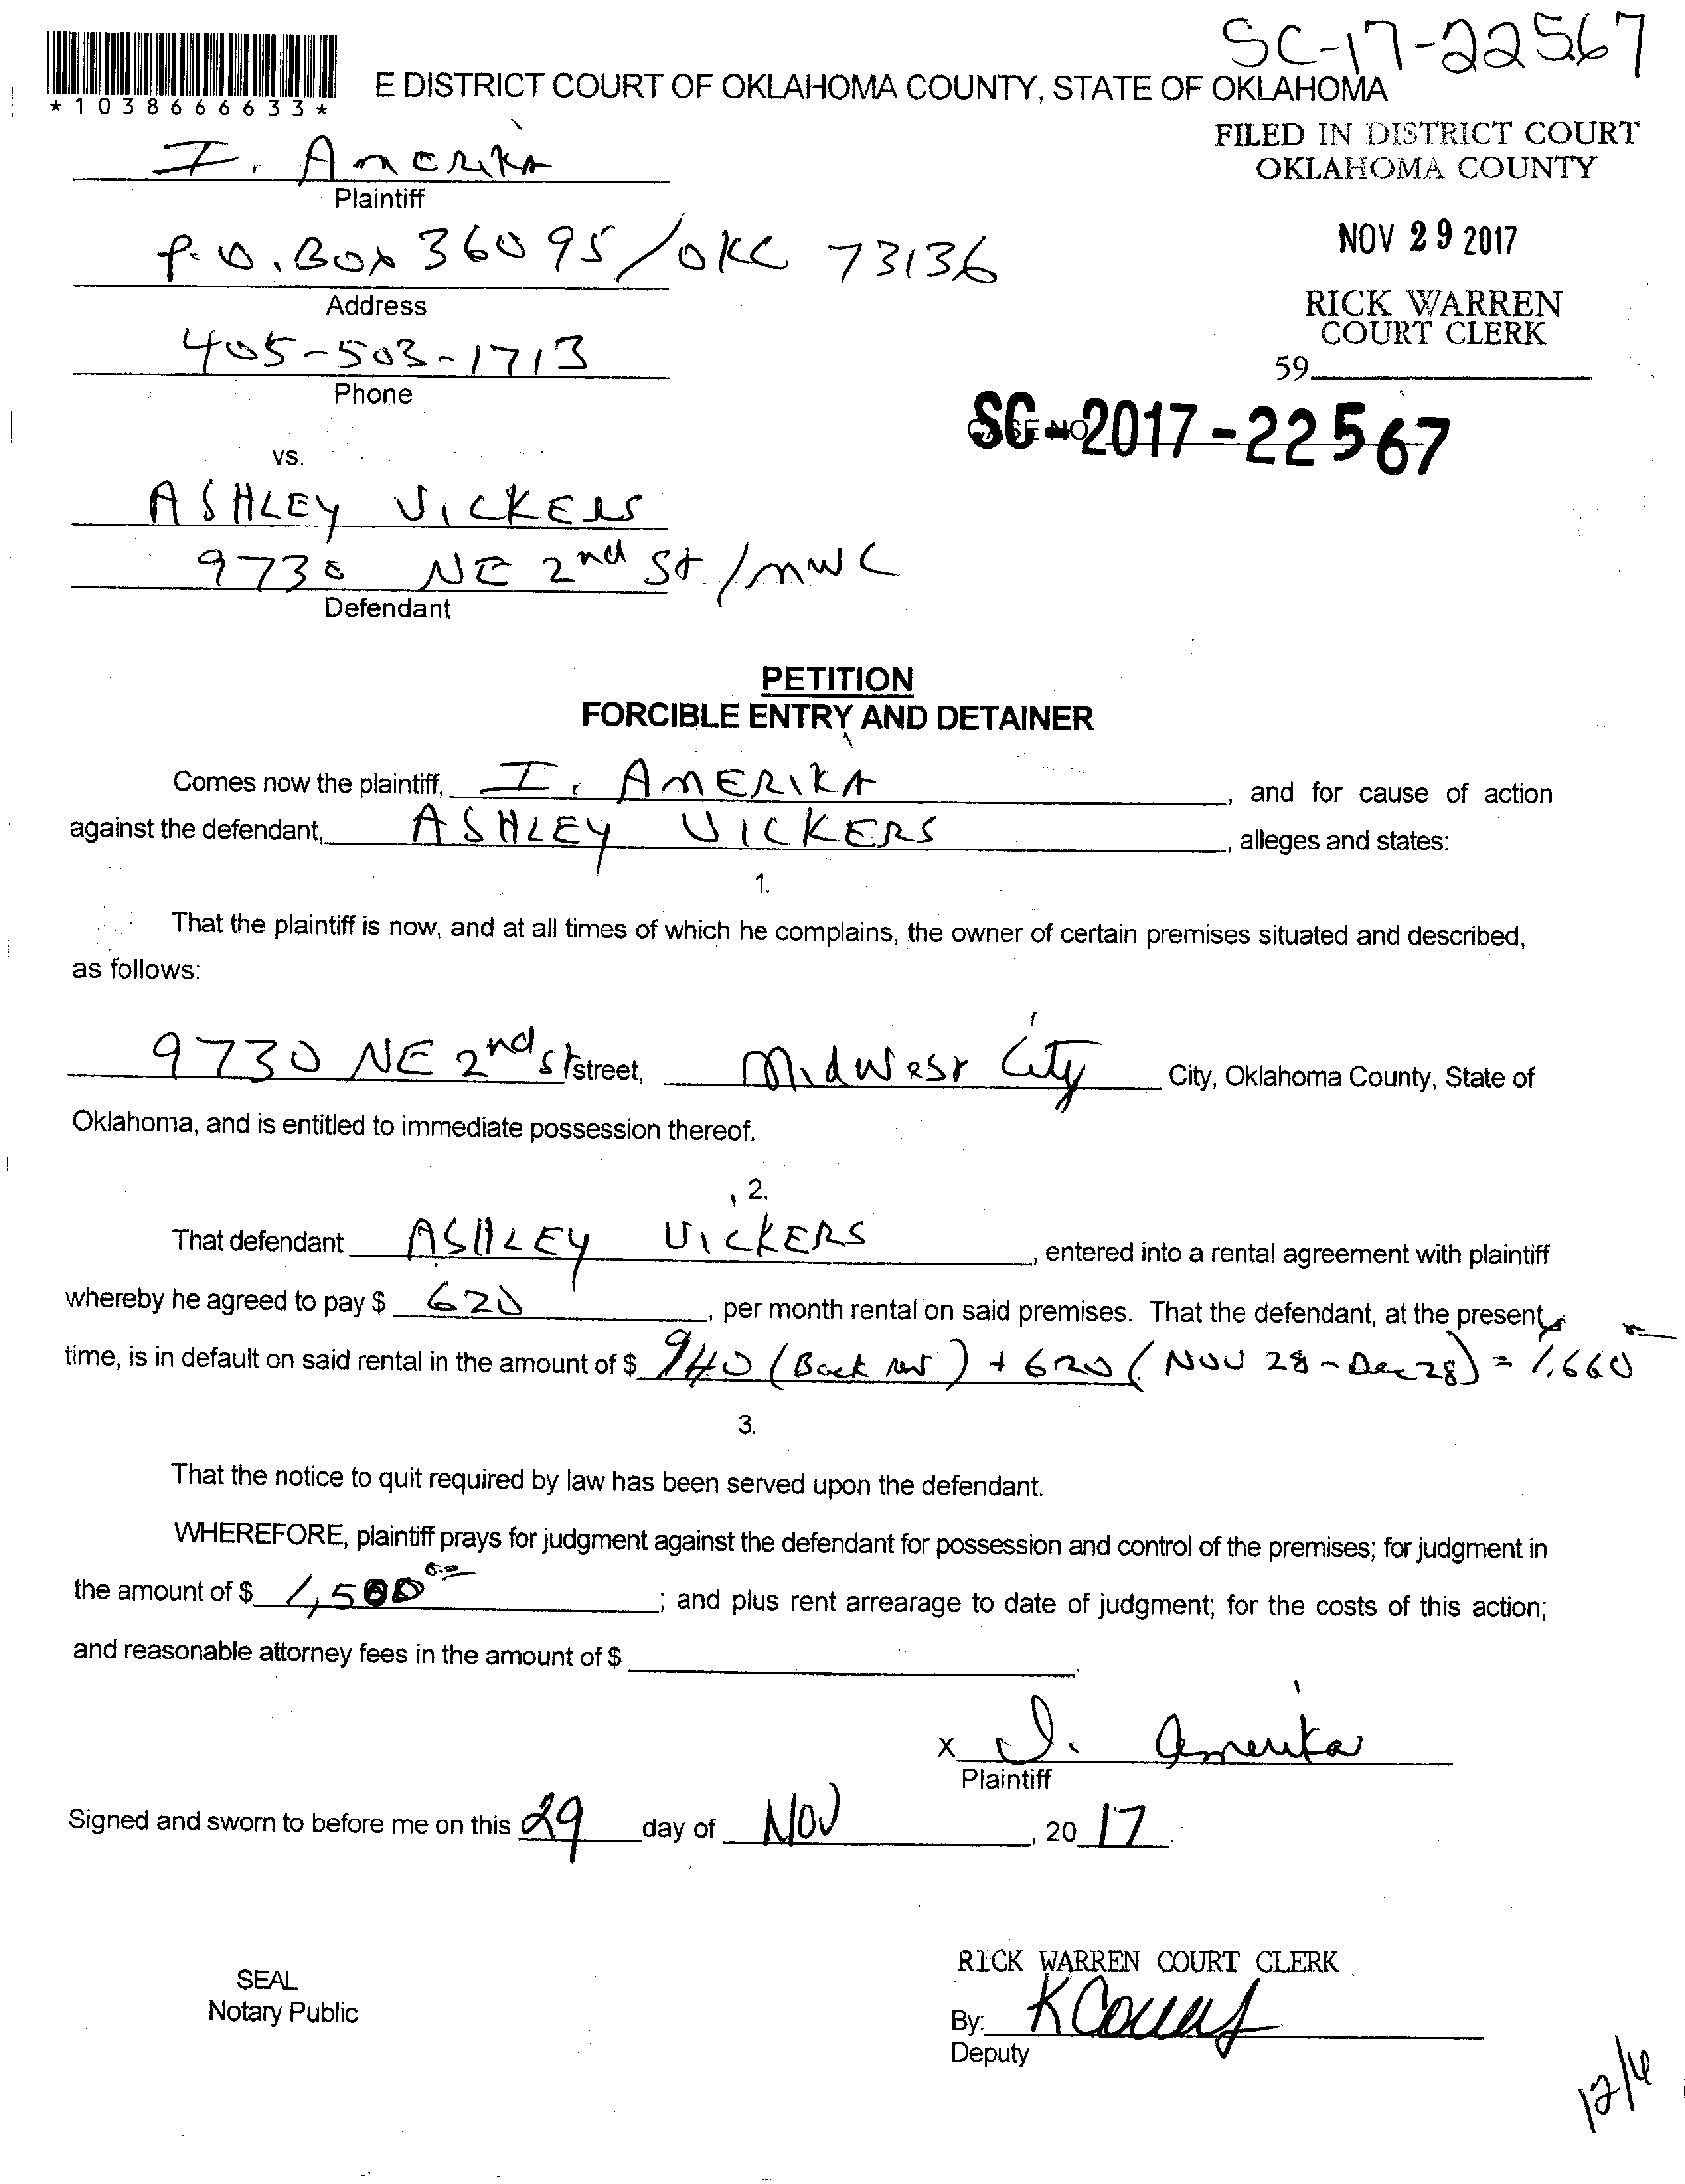 SC-17-22567
E DISTRICT COURT OF OKLAHOMA COUNTY, STATE OF OKLAHOMA
*1038666633*
FILED IN DISTRICT COURT
OKLAHOMA COUNTY
I. Amerika
Plaintiff
P.O. Box 36095/OKC 73136
NOV 29 2017
Address
RICK WARREN
COURT CLERK
405-503-1713
59
Phone
SC-2017-22567
vs.
ASHLEY VICKERS
9730 NE 2nd St./MWC
Defendant
PETITION
FORCIBLE ENTRY AND DETAINER
Comes now the plaintiff, I. AMERIKA, and for cause of action
against the defendant, ASHLEY VICKERS, alleges and states:
1.
That the plaintiff is now, and at all times of which he complains, the owner of certain premises situated and described,
as follows:
9730 NE 2nd St street, Midwest City City, Oklahoma County, State of
Oklahoma, and is entitled to immediate possession thereof.
2.
That defendant ASHLEY VICKERS, entered into a rental agreement with plaintiff
whereby he agreed to pay $ 620, per month rental on said premises. That the defendant, at the present
time, is in default on said rental in the amount of $ 940 (Back rent) + 620 (Nov 28 - Dec 28) = 1,660
3.
That the notice to quit required by law has been served upon the defendant.
WHEREFORE, plaintiff prays for judgment against the defendant for possession and control of the premises; for judgment in
the amount of $ 1,500; and plus rent arrearage to date of judgment; for the costs of this action;
and reasonable attorney fees in the amount of $
x I. Amerika
Plaintiff
Signed and sworn to before me on this 29 day of Nov, 20 17.
RICK WARREN COURT CLERK
SEAL
Notary Public
By:
Deputy